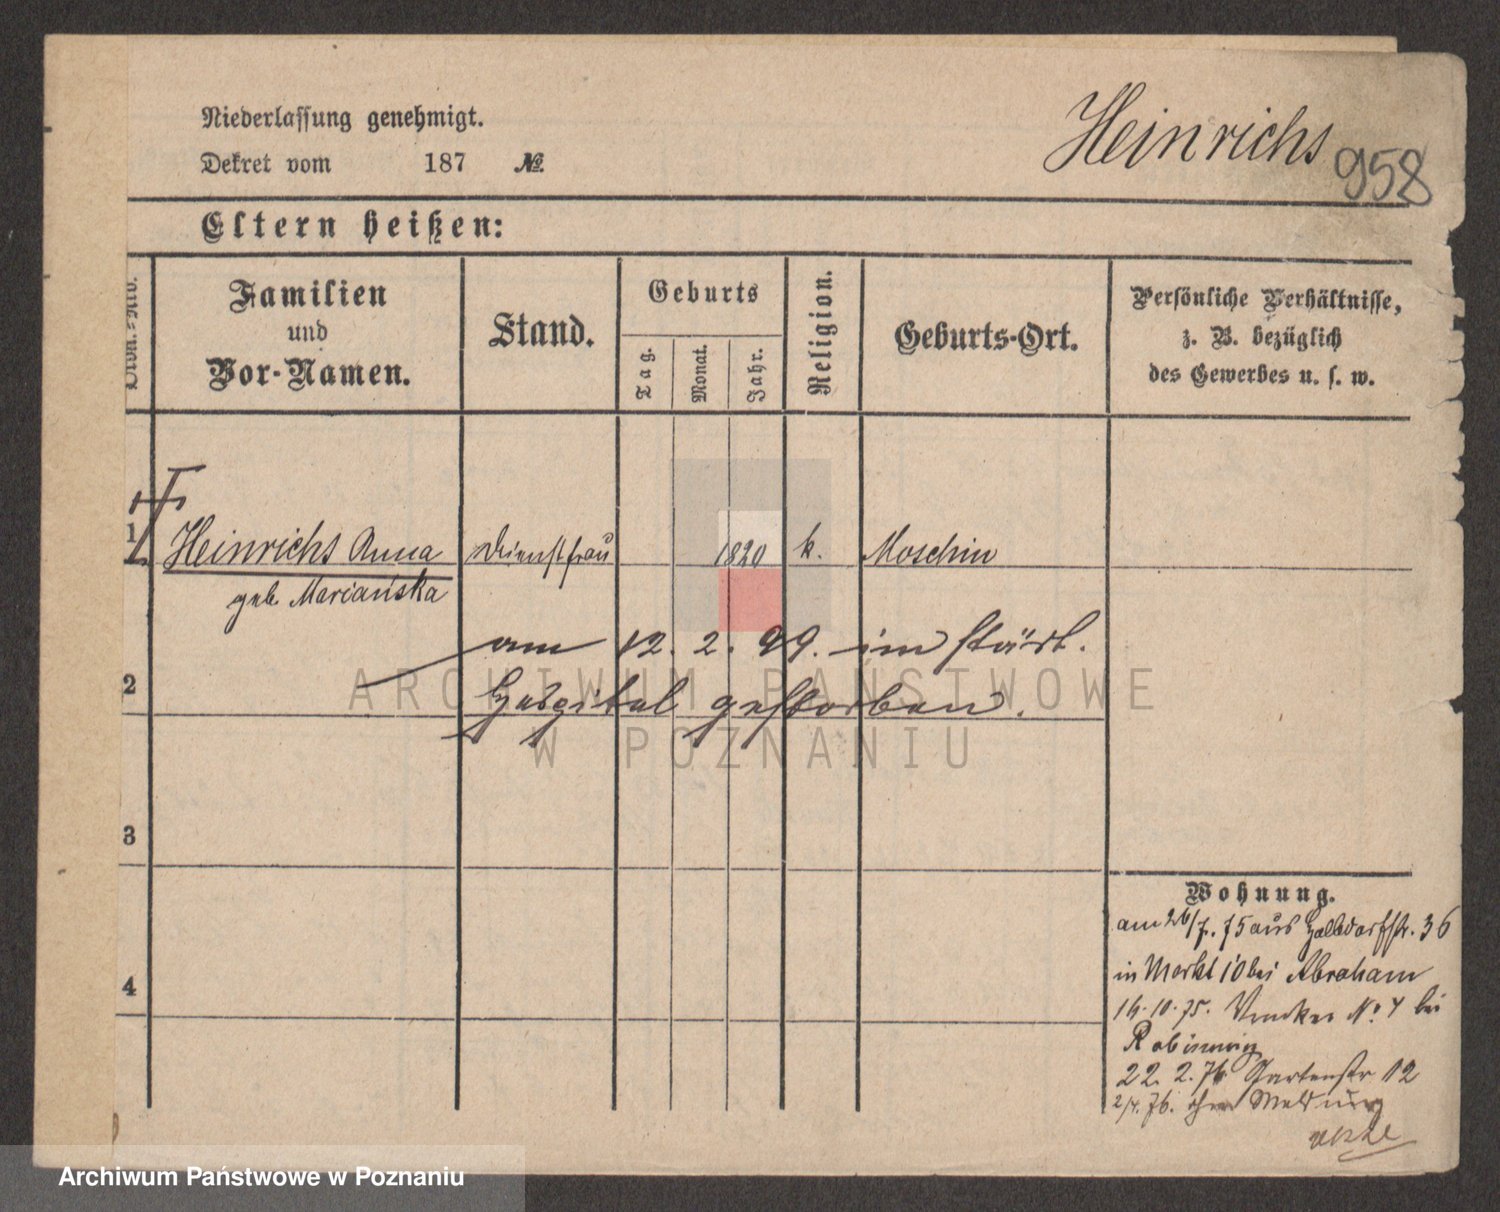 Niederlassung genehmigt.
Dekret vom 187 №
Heinrichs
958
Eltern heißen:
Familien und Vor-Namen.
Stand.
Geburts
Tag.
Monat.
Jahr.
Religion.
Geburts-Ort.
Persönliche Verhältnisse,
z. B. bezüglich
des Gewerbes u. s. w.
1 Heinrichs Anna Dienstfrau 1820 k. Moschin
geb. Mariańska
am 12. 2. 99. im städt.
2 Hospital gestorben.
3
4
Wohnung.
am 26/7. 75 aus Halbdorfstr. 36
in Markt 10 bei Abraham
16. 10. 75. No 4 bei
22. 2. 76 Gartenstr 12
2/4. 76. ohne Meldung
ARCHIWUM PAŃSTWOWE
W POZNANIU
Archiwum Państwowe w Poznaniu